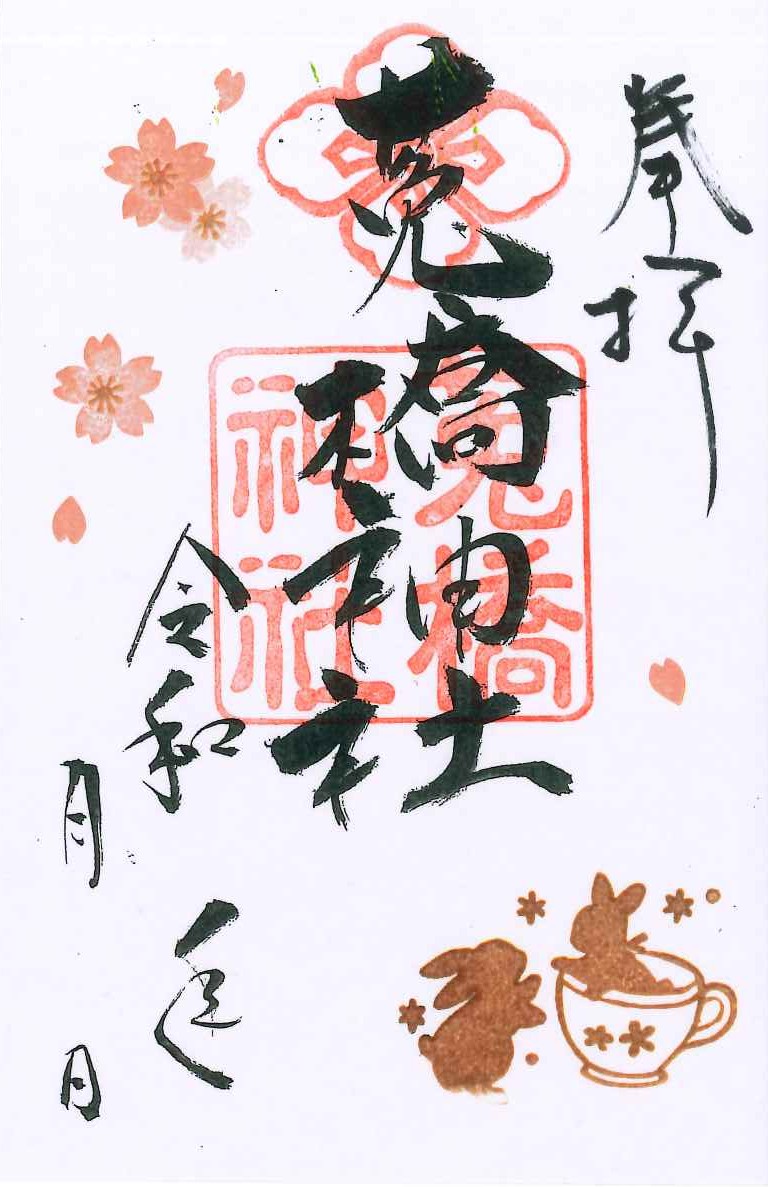 奉拝
菟橋神社
兎橋
神社
令和 年
月 日